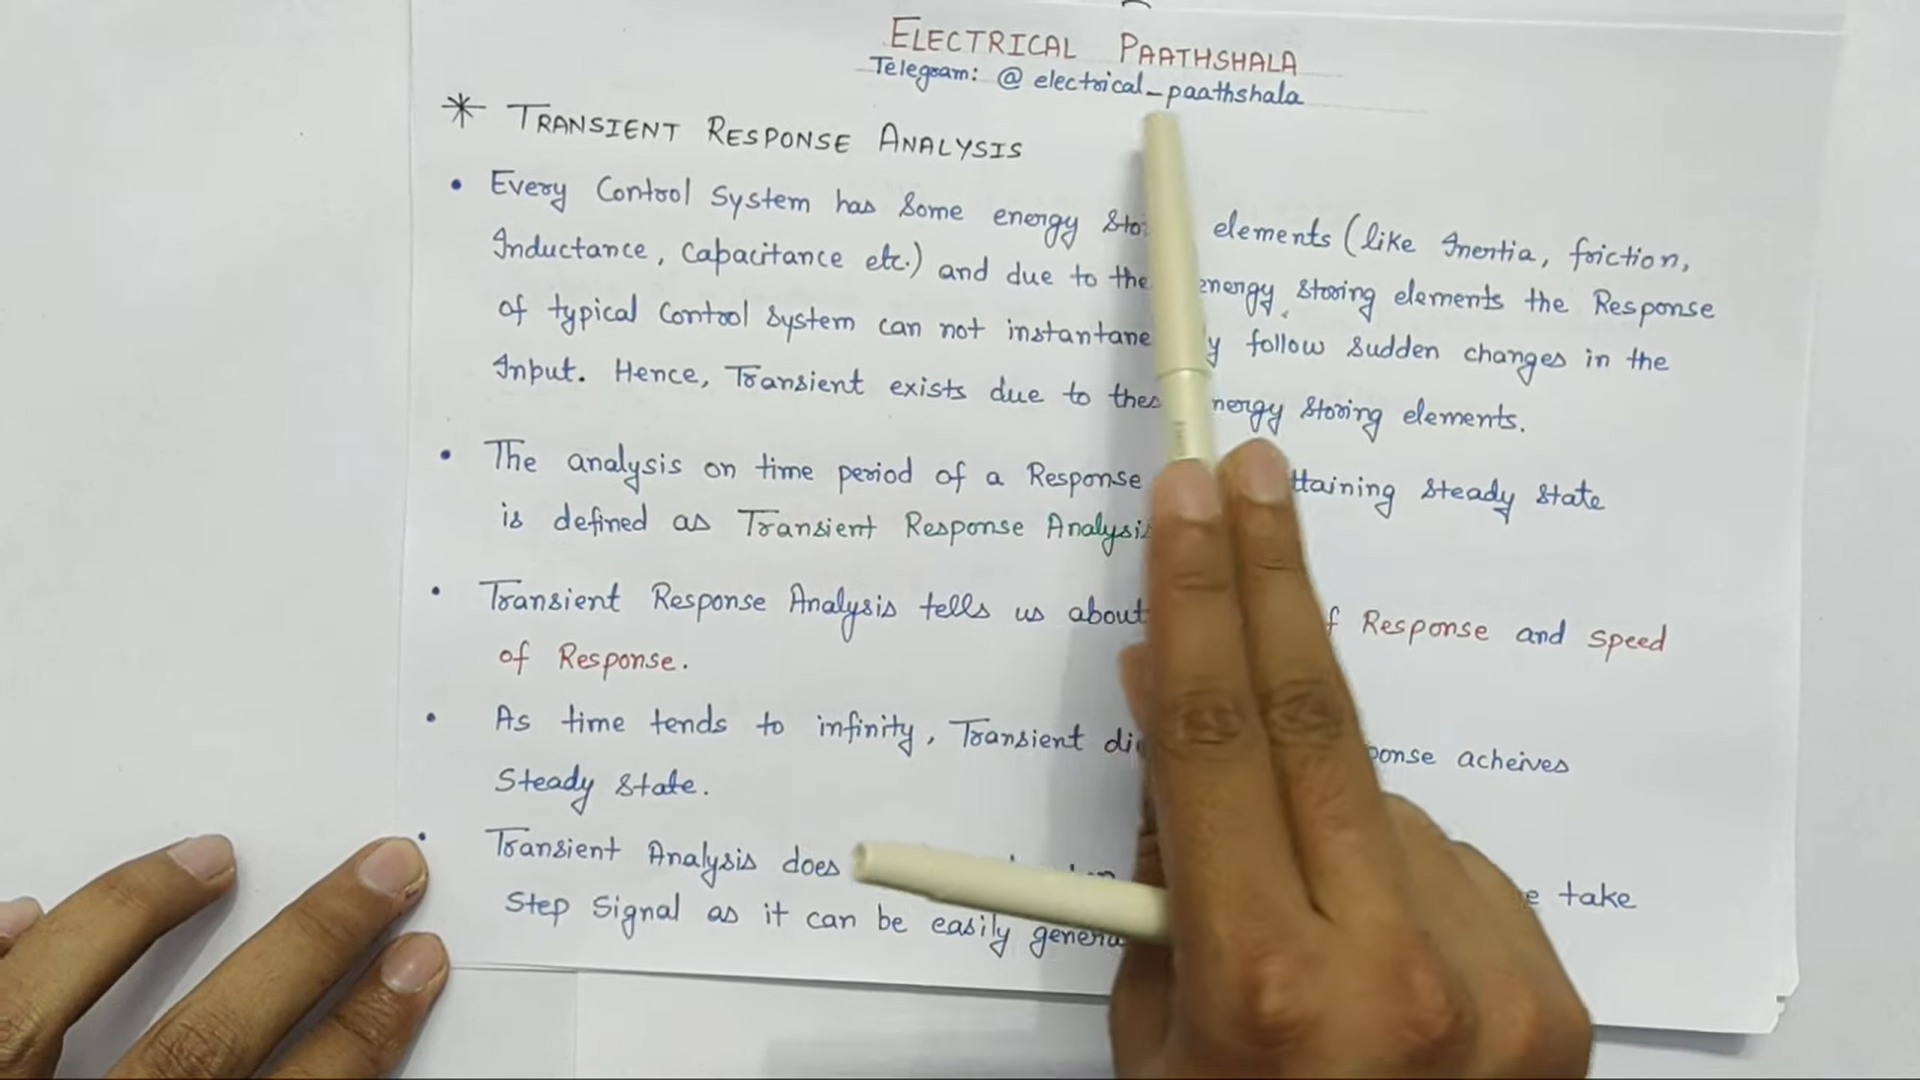 ELECTRICAL PAATHSHALA
Telegram: @ electrical_paathshala
* TRANSIENT RESPONSE ANALYSIS
• Every Control System has some energy elements (like Inertia, friction,
Inductance, Capacitance etc.) and due to the energy storing elements the Response
of typical Control System can not follow sudden changes in the
Input. Hence, Transient exists due to energy storing elements.
• The analysis on time period of a Response steady state
is defined as Transient Response Analysis
• Transient Response Analysis tells us about Response and speed
of Response.
• As time tends to infinity, Transient acheives
Steady state.
• Transient Analysis does take
Step Signal as it can be easily